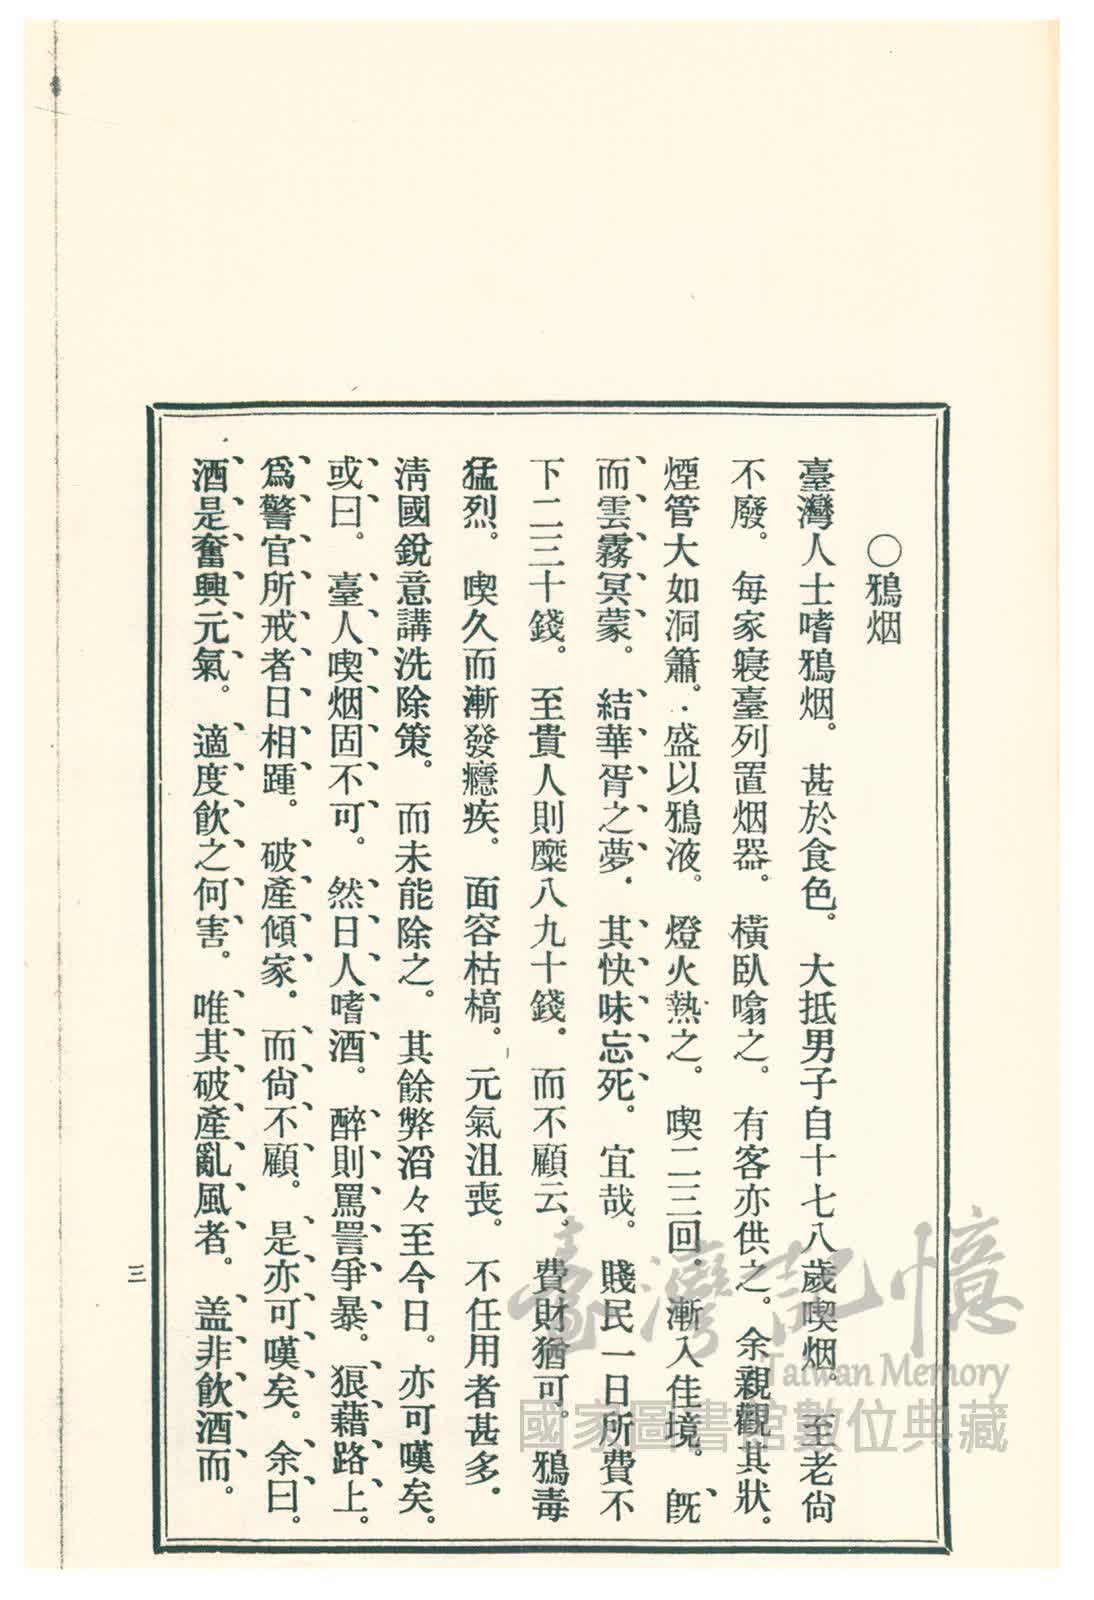 〇鴉烟
臺灣人士嗜鴉烟。甚於食色。大抵男子自十七八歲喫烟。至老尙
不廢。每家寢臺列置烟器。橫臥噏之。有客亦供之。余親觀其狀。
煙管大如洞簫。盛以鴉液。燈火熱之。喫二三回。漸入佳境。旣
而雲霧冥蒙。結華胥之夢。其快味忘死。宜哉。賤民一日所費不
下二三十錢。至貴人則糜八九十錢。而不顧云。費財猶可。鴉毒
猛烈。喫久而漸發癮疾。面容枯槁。元氣沮喪。不任用者甚多。
淸國銳意講洗除策。而未能除之。其餘弊滔々至今日。亦可嘆矣。
或曰。臺人喫烟固不可。然日人嗜酒。醉則罵詈爭暴。狼藉路上。
爲警官所戒者日相踵。破產傾家。而尙不顧。是亦可嘆矣。余曰。
酒是奮興元氣。適度飮之何害。唯其破產亂風者。盖非飮酒而。
三
臺灣記憶
Taiwan Memory
國家圖書館數位典藏